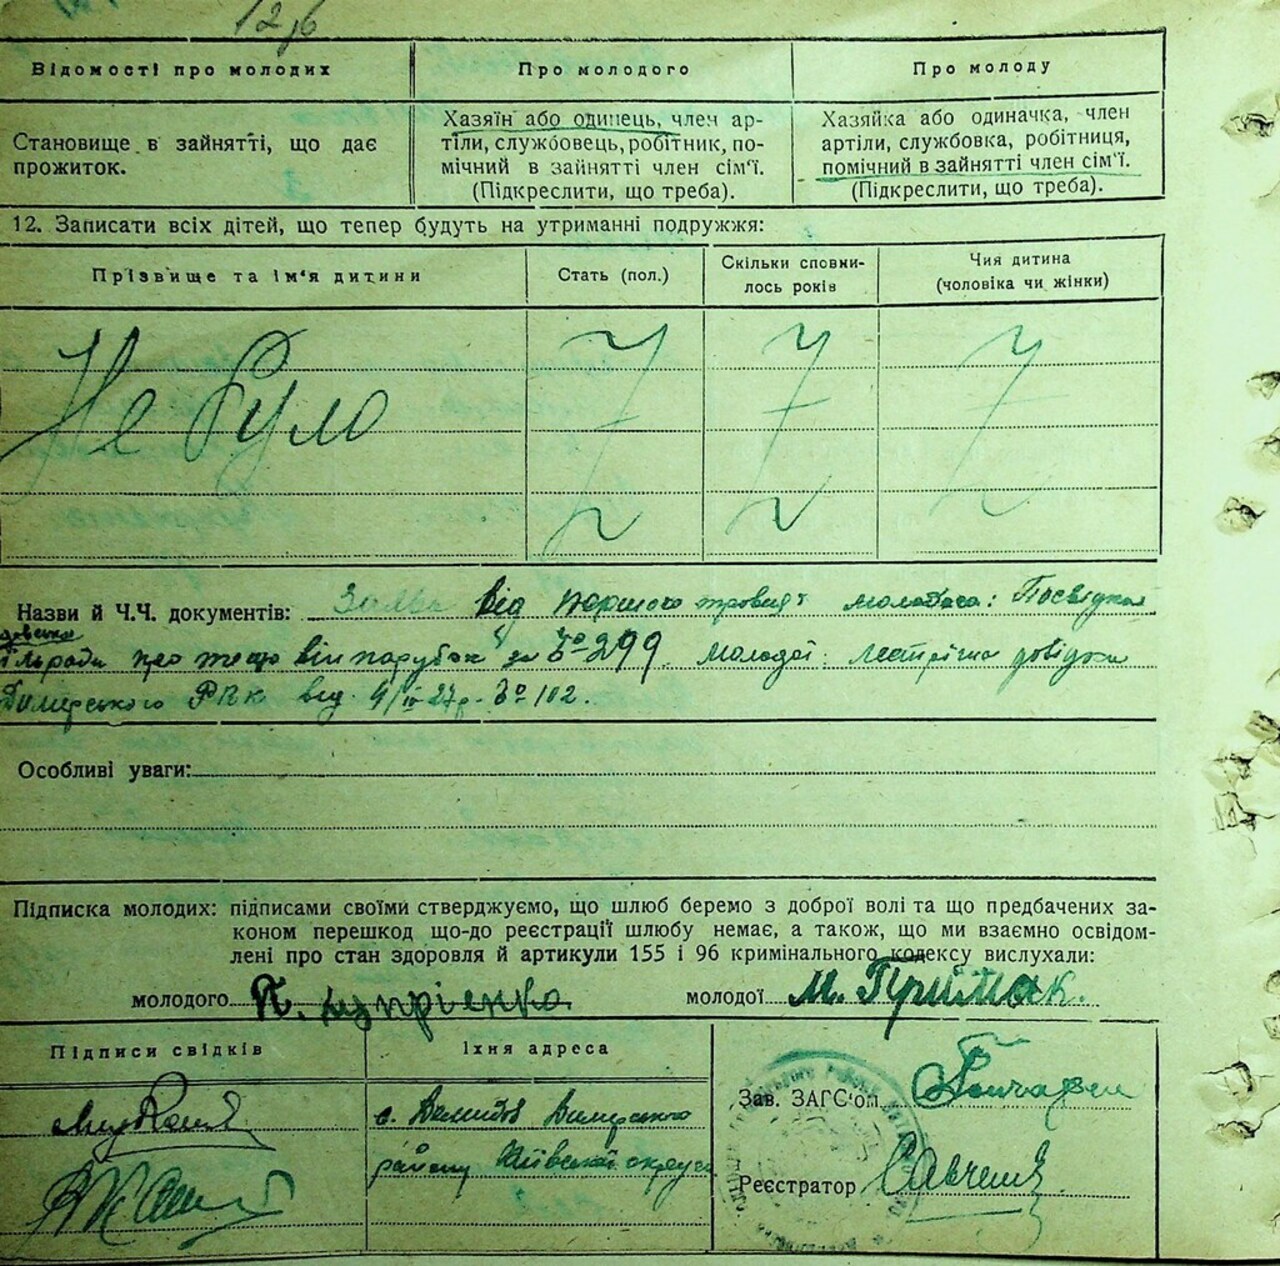 Відомості про молодих Про молодого Про молоду
Становище в зайнятті, що дає прожиток.
Хазяїн або одинець, член ар-
тіли, службовець, робітник, по-
мічний в зайнятті член сім'ї.
(Підкреслити, що треба).
Хазяйка або одиначка, член
артіли, службовка, робітниця,
помічний в зайнятті член сім'ї.
(Підкреслити, що треба).
12. Записати всіх дітей, що тепер будуть на утриманні подружжя:
Прізвище та ім'я дитини
Стать (пол.)
Скільки сповни-
лось років
Чия дитина
(чоловіка чи жінки)
Не було
Назви й Ч.Ч. документів: Заява від молодого: Посвідка
про те що він парубок за № 299. Молодої:
Димерського від 4/IV 27р. № 102.
Особливі уваги:
Підписка молодих: підписами своїми стверджуємо, що шлюб беремо з доброї волі та що предбачених за-
коном перешкод що-до реєстрації шлюбу немає, а також, що ми взаємно освідом-
лені про стан здоровля й артикули 155 і 96 кримінального кодексу вислухали:
молодого П. Купрієнко молодої М. Приймак.
Підписи свідків Їхня адреса
Зав. ЗАГС'ом Гончарен
с. Димерського
району Київської округи
Реєстратор Савченко